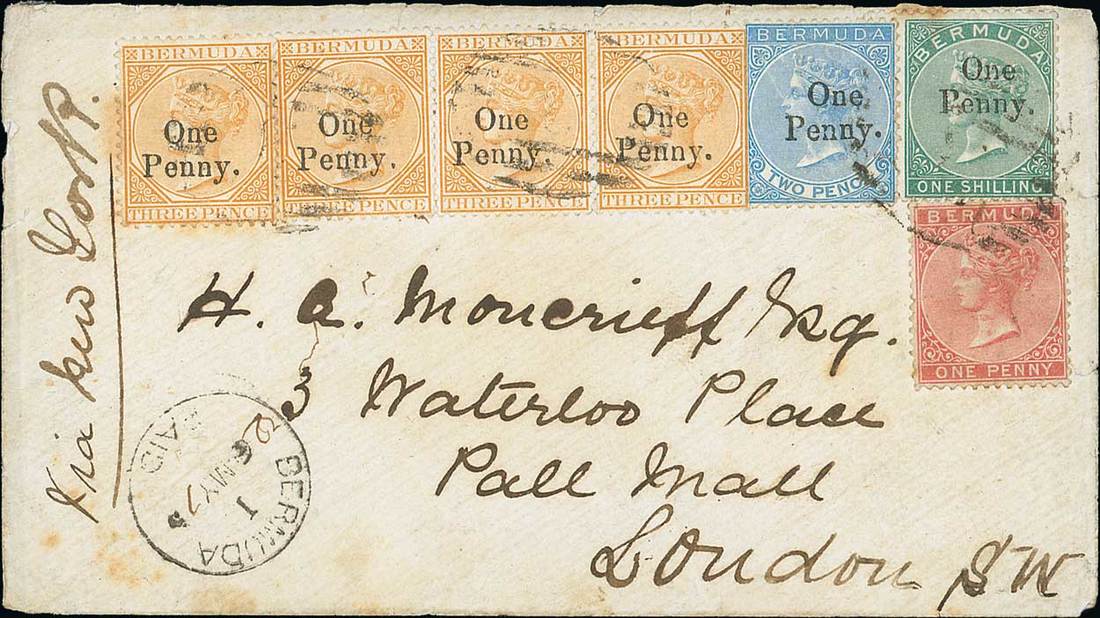 BERMUDA
One
Penny.
THREE PENCE
BERMUDA
One
Penny.
THREE PENCE
BERMUDA
One
Penny.
THREE PENCE
BERMUDA
One
Penny.
THREE PENCE
BERMUDA
One
Penny.
TWO PENCE
BERMUDA
One
Penny.
ONE SHILLING
BERMUDA
ONE PENNY
Via New York.
H. A. Moncrieff Esq.
3 Waterloo Place
Pall Mall
London SW
BERMUDA
PAID
1
MY